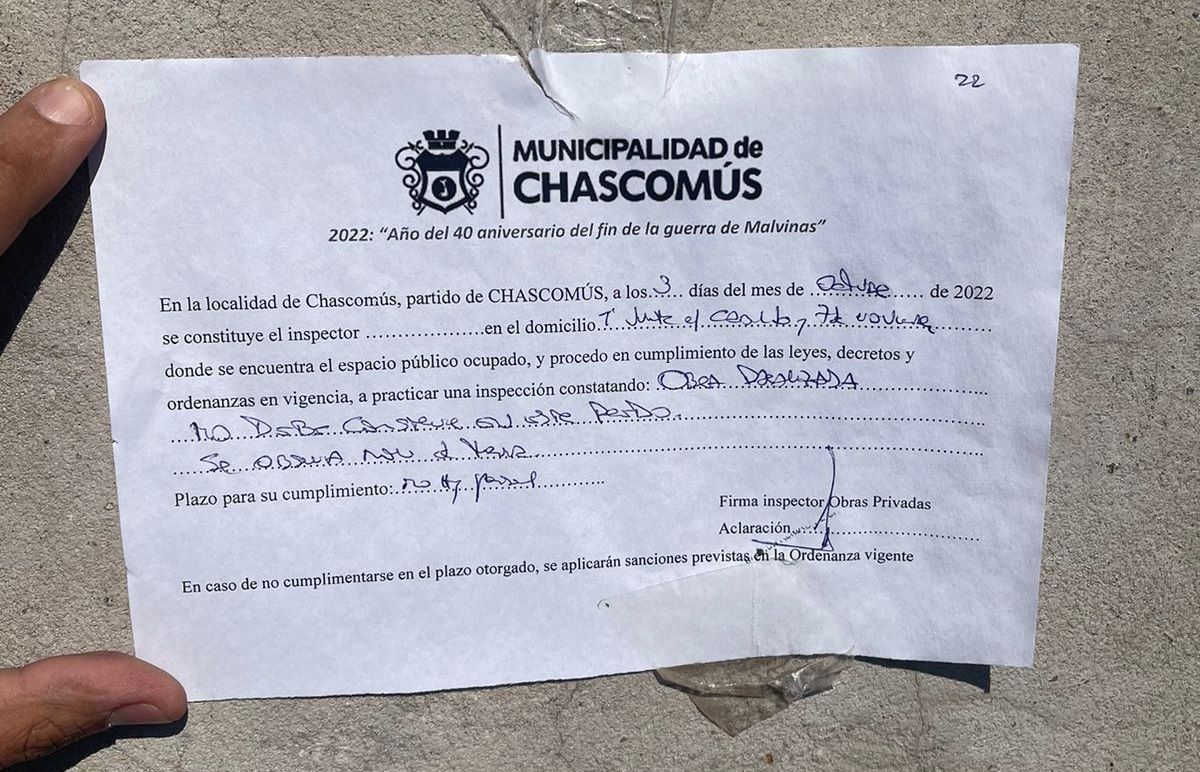 22
MUNICIPALIDAD de
CHASCOMÚS
2022: “Año del 40 aniversario del fin de la guerra de Malvinas”
En la localidad de Chascomús, partido de CHASCOMÚS, a los 3 días del mes de octubre de 2022
se constituye el inspector ....................en el domicilio
donde se encuentra el espacio público ocupado, y procedo en cumplimiento de las leyes, decretos y
ordenanzas en vigencia, a practicar una inspección constatando: OBRA
NO DEBE en este
Se OBSERVA
Plazo para su cumplimiento: no hay
Firma inspector Obras Privadas
Aclaración
En caso de no cumplimentarse en el plazo otorgado, se aplicarán sanciones previstas en la Ordenanza vigente